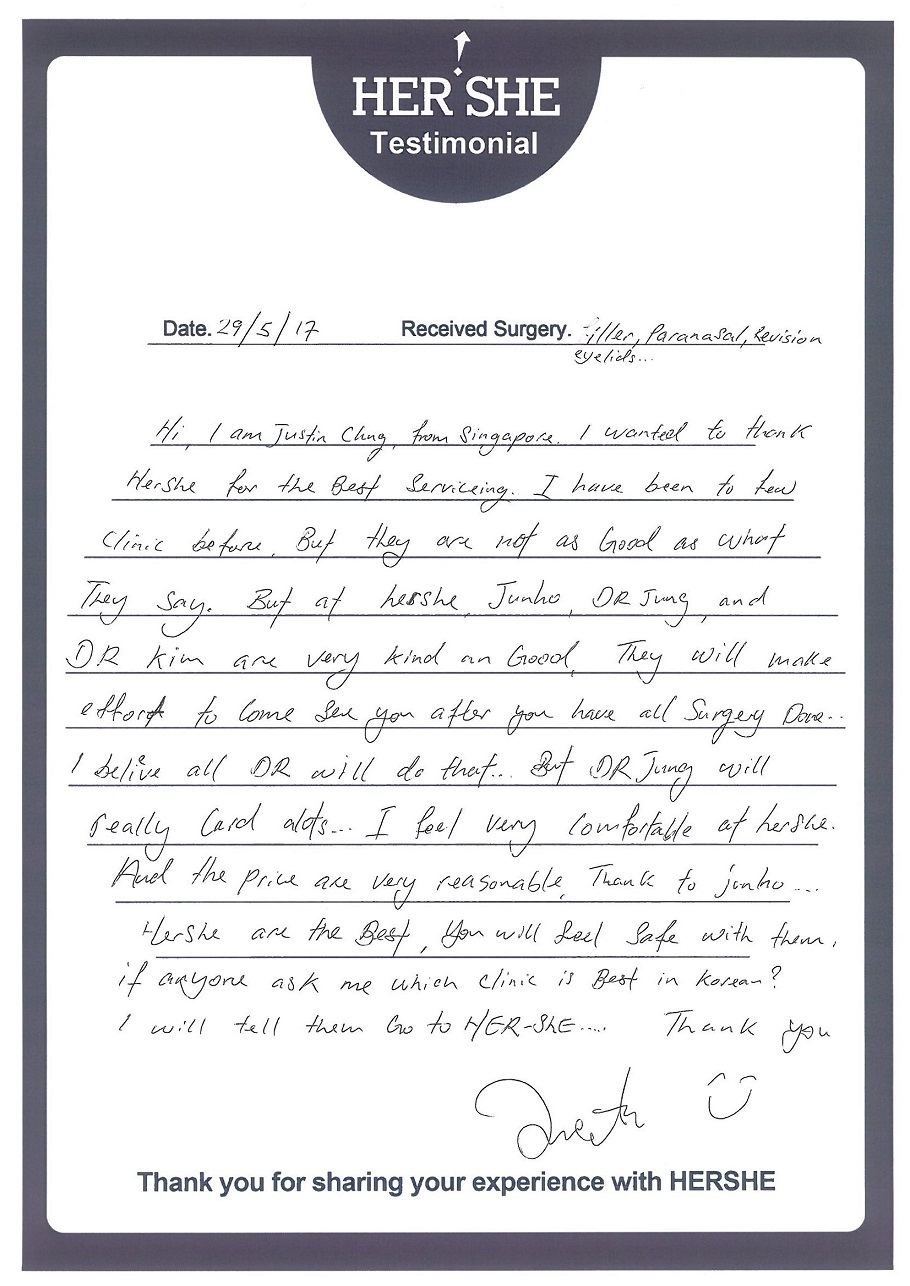 HER SHE
Testimonial
Date. 29/5/17 Received Surgery. Filler, Paranasal, Revision
eyelids...
Hi, I am Justin Chng, from Singapore. I wanted to thank
Hershe for the Best Serviceing. I have been to few
Clinic before, But they are not as Good as what
They say. But at hershe, Junho, DR Jung, and
DR Kim are very kind an Good, They will make
effort to Come See you after you have all Surgery Done..
I belive all DR will do that... But DR Jung will
really Card alots... I feel very Comfortable at hershe.
And the price are very reasonable, Thank to junho...
Hershe are the Best, You will feel Safe with them,
if anyone ask me which Clinic is Best in Korean?
I will tell them Go to HER-SHE.... Thank you
Thank you for sharing your experience with HERSHE